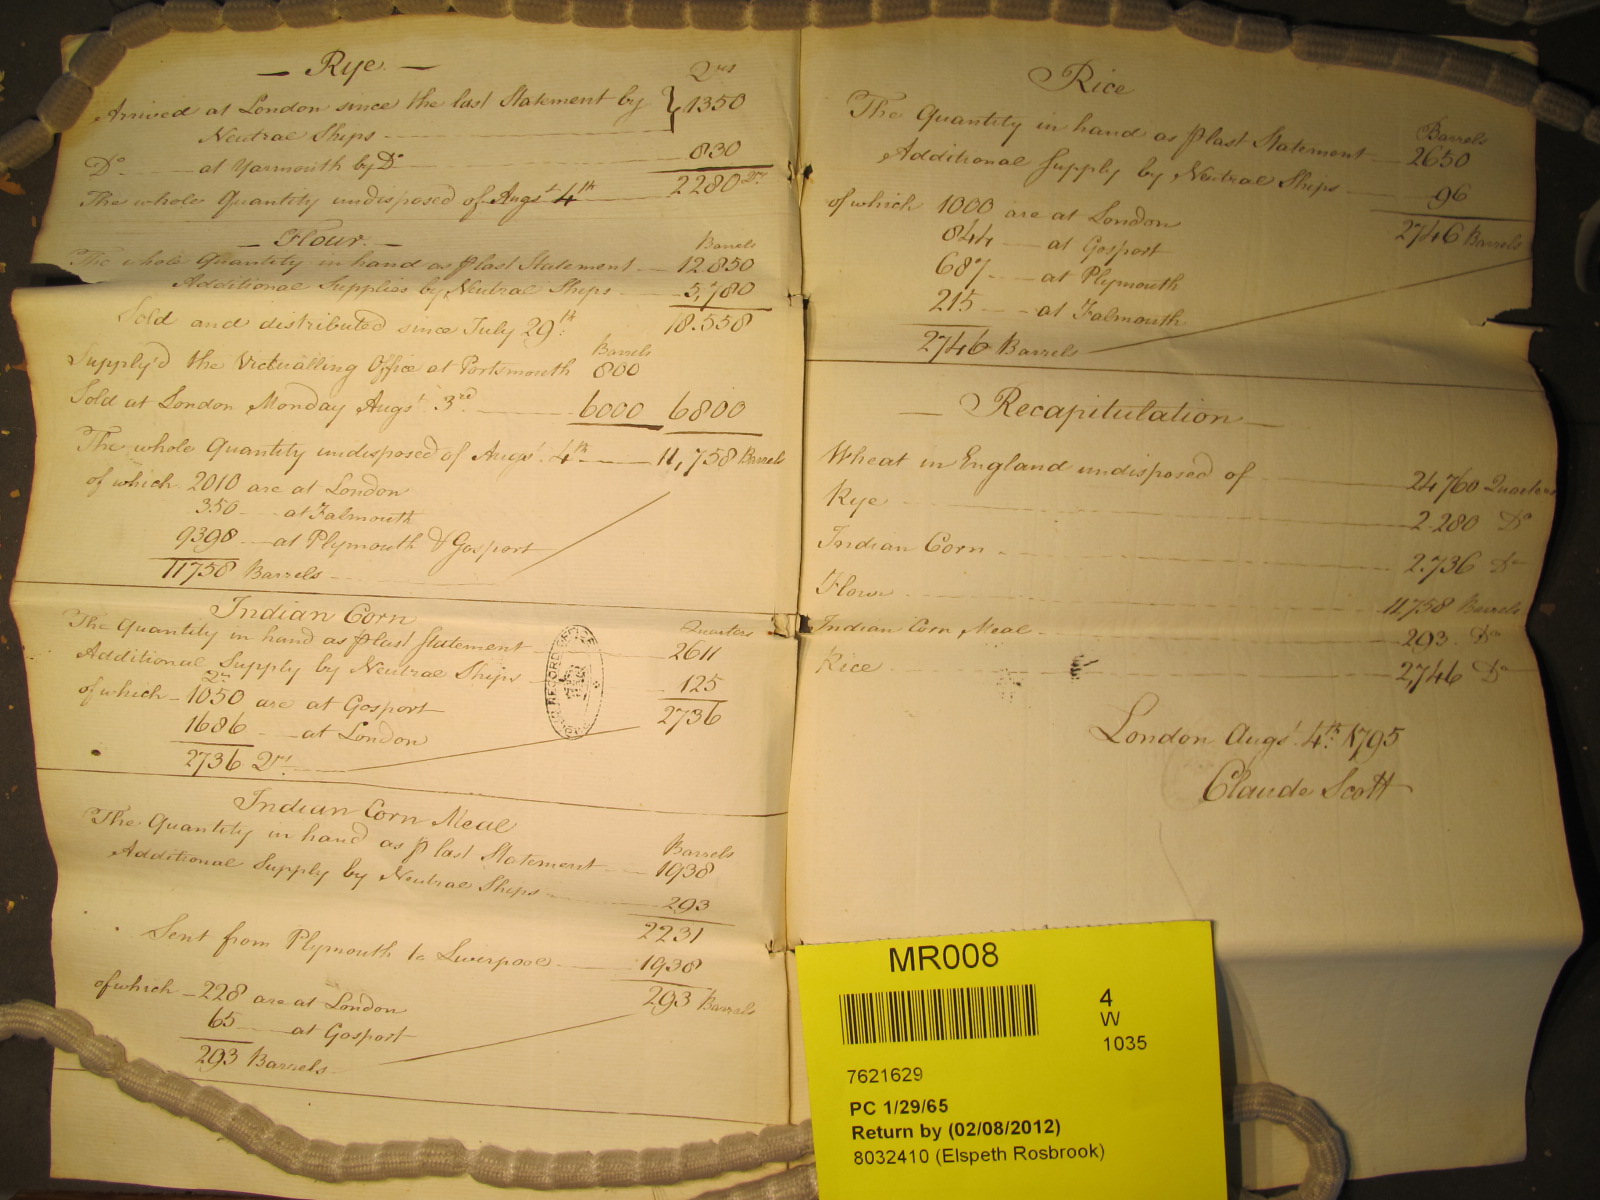 — Rye. —
Qrs
Arrived at London since the last Statement by } 1350
Neutral Ships
Do at Yarmouth by Do 930
2280 Qrs
The whole Quantity undisposed of Augst 4th
— Flour. —
Barrels
The whole Quantity in hand as P last Statement 12.850
Additional Supplies by Neutral Ships 5,708
18.558
Sold and distributed since July 29th:
Barrels
Supply'd the Victualling Office at Portsmouth 800
Sold at London Monday Augst. 3rd 6000 6800
The whole Quantity undisposed of Augst. 4th 11,758 Barrels
of which 2010 are at London
350 at Falmouth
9398 at Plymouth & Gosport
11758 Barrels
Indian Corn
Quarters
The Quantity in hand as P last Statement 2611
Additional Supply by Neutral Ships 125
2736
Qrs
of which 1050 are at Gosport
1686 at London
2736 Qrs.
RECORD OFFICE
Indian Corn Meal
Barrels
The Quantity in hand as P last Statement 1938
Additional Supply by Neutral Ships 293
2231
Sent from Plymouth to Liverpool 1938
293 Barrels
of which 228 are at London
65 at Gosport
293 Barrels
Rice
Barrels
The Quantity in hand as P last Statement 2650
Additional Supply by Neutral Ships 96
2746 Barrels
of which 1000 are at London
844 at Gosport
687 at Plymouth
215 at Falmouth
2746 Barrels
— Recapitulation —
Wheat in England undisposed of 24,760 Quarters
Rye 2.280 Do
Indian Corn 2.736 Do
Flour 11,758 Barrels
Indian Corn Meal 293 Do
Rice 2,746 Do
London Augst. 4th: 1795
Claude Scott
MR008
4
W
1035
7621629
PC 1/29/65
Return by (02/08/2012)
8032410 (Elspeth Rosbrook)